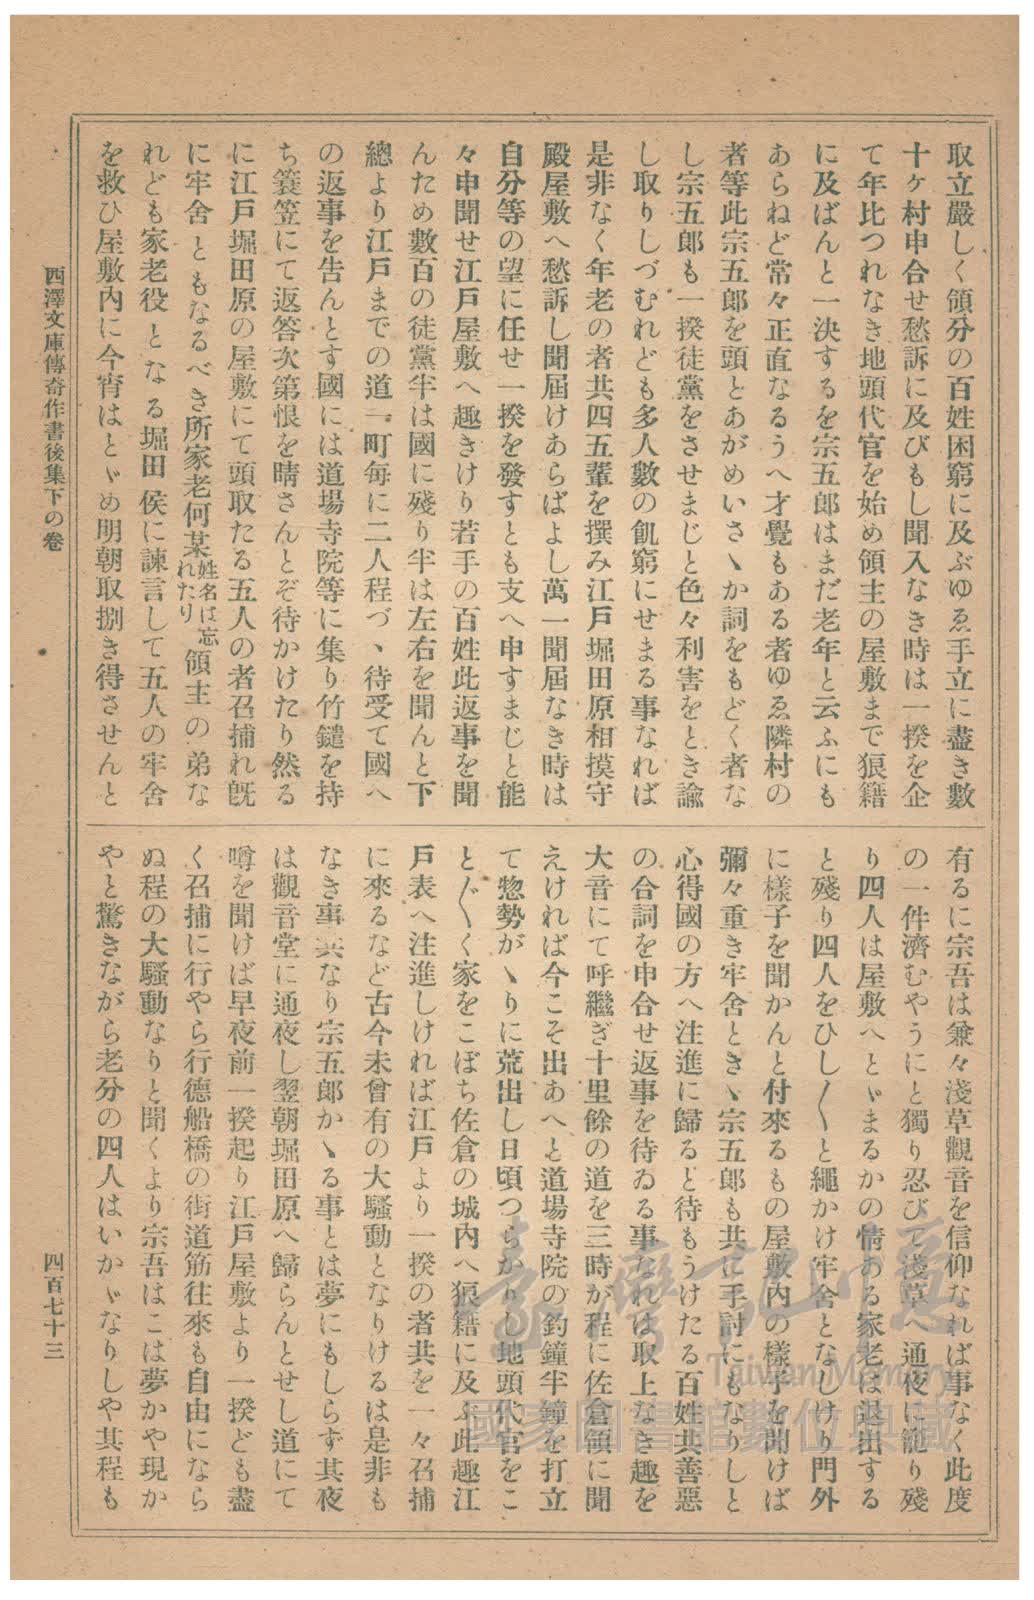 取立嚴しく領分の百姓困窮に及ぶゆゑ手立に盡き數
十ヶ村申合せ愁訴に及びもし聞入なき時は一揆を企
て年比つれなき地頭代官を始め領主の屋敷まで狼籍
に及ばんと一決するを宗五郎はまだ老年と云ふにも
あらねど常々正直なるうへ才覺もある者ゆゑ隣村の
者等此宗五郎を頭とあがめいさゝか詞をもどく者な
し宗五郎も一揆徒黨をさせまじと色々利害をとき諭
し取りしづむれども多人數の飢窮にせまる事なれば
是非なく年老の者共四五輩を撰み江戸堀田原相摸守
殿屋敷へ愁訴し聞屆けあらばよし萬一聞屆なき時は
自分等の望に任せ一揆を發すとも支へ申すまじと能
々申聞せ江戸屋敷へ趣きけり若手の百姓此返事を聞
んため數百の徒黨半は國に殘り半は左右を聞んと下
總より江戸までの道一町每に二人程づゝ待受て國へ
の返事を吿んとす國には道場寺院等に集り竹鑓を持
ち簑笠にて返答次第恨を晴さんとぞ待かけたり然る
に江戸堀田原の屋敷にて頭取たる五人の者召捕れ旣
に牢舍ともなるべき所家老何某姓名は忘れたり領主の弟な
れども家老役となる堀田侯に諫言して五人の牢舍
を救ひ屋敷內に今宵はとゞめ明朝取捌き得させんと
有るに宗吾は兼々淺草觀音を信仰なれば事なく此度
の一件濟むやうにと獨り忍びて淺草へ通夜に籠り殘
り四人は屋敷へとゞまるかの情ある家老は退出する
と殘り四人をひし〱と繩かけ牢舍となしけり門外
に樣子を聞かんと付來るもの屋敷內の樣子を聞けば
彌々重き牢舍ときゝ宗五郎も共に手討にもなりしと
心得國の方へ注進に歸ると待もうけたる百姓共善惡
の合詞を申合せ返事を待ゐる事なれは取上なき趣を
大音にて呼繼ぎ十里餘の道を三時が程に佐倉領に聞
えければ今こそ出あへと道場寺院の釣鐘半鐘を打立
て惣勢がゝりに荒出し日頃つらかりし地頭代官をこ
と〲く家をこぼち佐倉の城內へ狼籍に及ぶ此趣江
戸表へ注進しければ江戸より一揆の者共を一々召捕
に來るなど古今未曾有の大騷動となりけるは是非も
なき事共なり宗五郎かゝる事とは夢にもしらず其夜
は觀音堂に通夜し翌朝堀田原へ歸らんとせし道にて
噂を聞けば早夜前一揆起り江戸屋敷より一揆ども盡
く召捕に行やら行德船橋の街道筋往來も自由になら
ぬ程の大騷動なりと聞くより宗吾はこは夢かや現か
やと驚きながら老分の四人はいかゞなりしや其程も
西澤文庫傳奇作書後集下の卷
四百七十三
臺灣記憶
Taiwan Memory
國家圖書館數位典藏